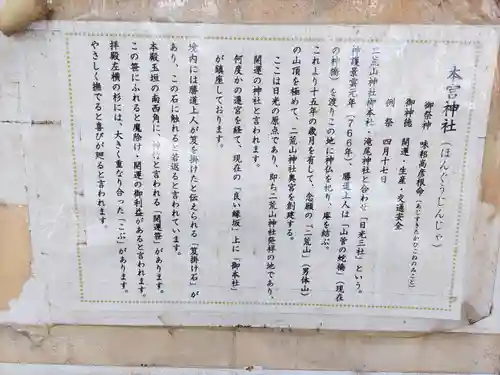 本宮神社（ほんぐうじんじゃ）
御祭神　味耜高彦根命（あじすきたかひこねのみこと）
御神徳　開運・生産・交通安全
例祭　四月十七日
二荒山神社御本社・滝尾神社と合わせ「日光三社」という。
神護景雲元年（７６６年）、勝道上人は「山菅の蛇橋」（現在
の神橋）を渡りこの地に神仏を祀り、庵を結ぶ。
これより十五年の歳月を有して、念願の「二荒山」（男体山）
の山頂を極めて、二荒山神社奥宮を創建する。
ここは日光の原点であり、即ち二荒山神社発祥の地であり、
開運の神社と言われます。
何度かの遷宮を経て、現在の「良い縁坂」上に「御本社」
が鎮座しております。
境内には勝道上人が笈を掛けたと伝えられる「笈掛け石」が
あり、この石に触れると若返ると言われています。
本殿玉垣の南西角に、と言われる「開運笹」があります。
この笹にふれると魔除け・開運の御利益があると言われます。
拝殿左横の杉には、大きく重なり合った「こぶ」があります。
やさしく撫でると喜びが廻ると言われます。